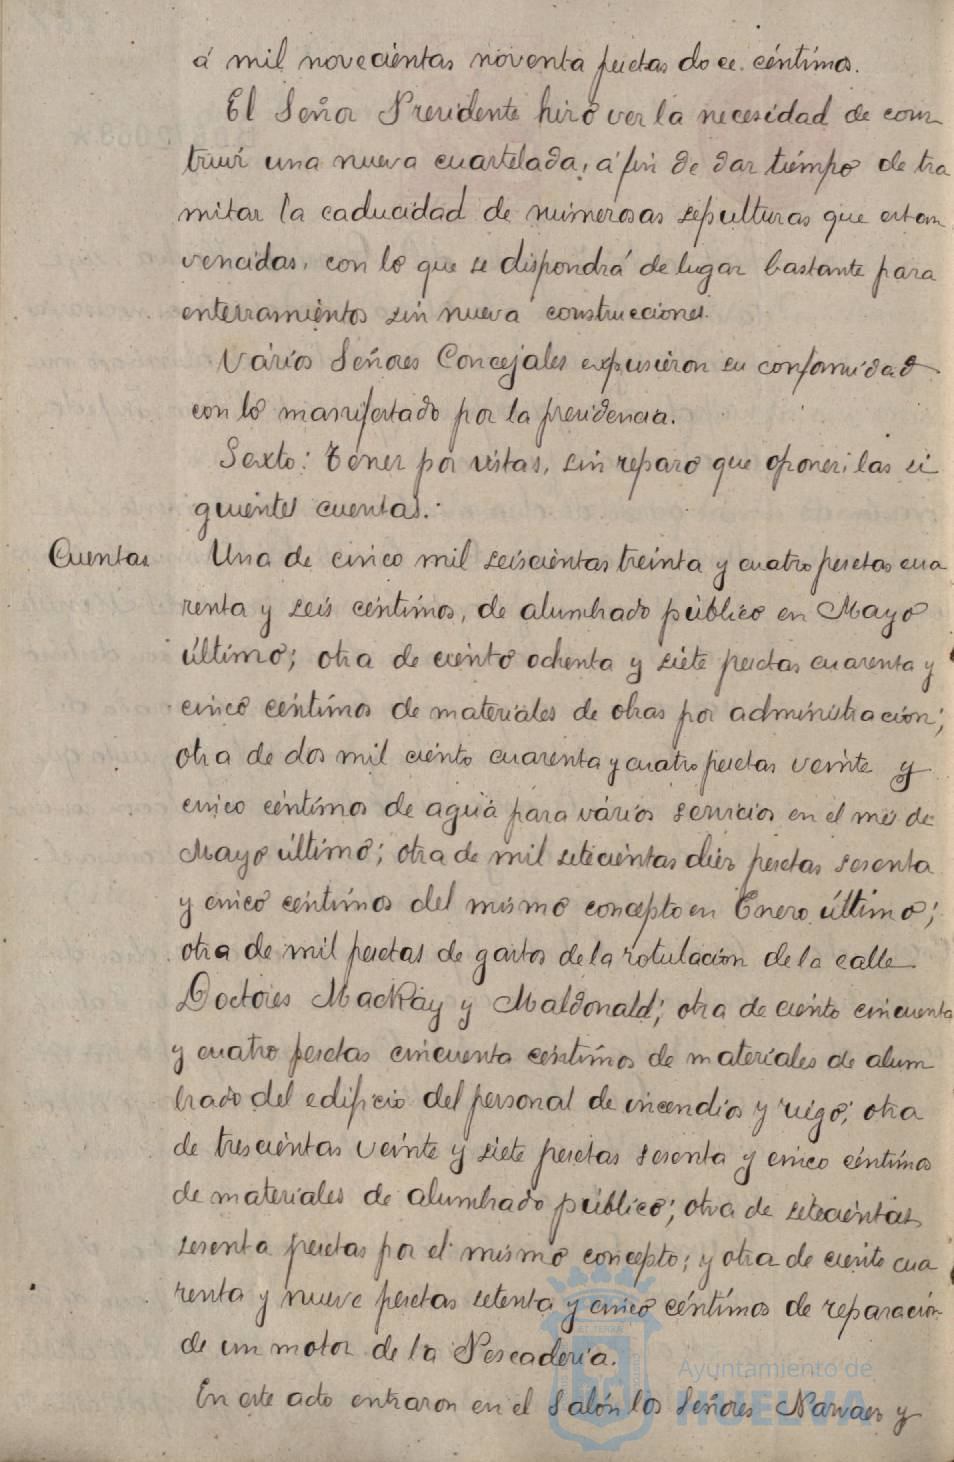 á mil novecientas noventa pesetas doce céntimos.
El Señor Presidente hizo ver la necesidad de cons
truir una nueva cuartelada, á fin de dar tiempo de tra
mitar la caducidad de numerosas sepulturas que estan
vencidas, con lo que se dispondrá de lugar bastante para
enterramientos sin nueva construcciones.
Vários Señores Concejales expusieron su conformidad
con lo manifestado por la presidencia.
Sexto: Tener por vistas, sin reparo que oponer, las si
guientes cuentas.
Cuentas
Una de cinco mil seiscientas treinta y cuatro pesetas cua
renta y seis céntimos, de alumbrado público en Mayo
último; otra de ciento ochenta y siete pesetas cuarenta y
cinco céntimos de materiales de obras por administración;
otra de dos mil ciento cuarenta y cuatro pesetas veinte y
cinco céntimos de agua para vários servicios en el mes de
Mayo último; otra de mil setecientas diez pesetas sesenta
y cinco céntimos del mismo concepto en Enero último;
otra de mil pesetas de gastos de la rotulación de la calle
Doctores Mackay y Maldonald; otra de ciento cincuenta
y cuatro pesetas cincuenta céntimos de materiales de alum
brado del edificio del personal de incendios y riego; otra
de trescientas veinte y siete pesetas sesenta y cinco céntimos
de materiales de alumbrado público; otra de setecientas
sesenta pesetas por el mismo concepto; y otra de ciento cua
renta y nueve pesetas setenta y cinco céntimos de reparación
de un motor de la Pescadería.
En este acto entraron en el Salón los Señores Narvaez y
Ayuntamiento de
HUELVA